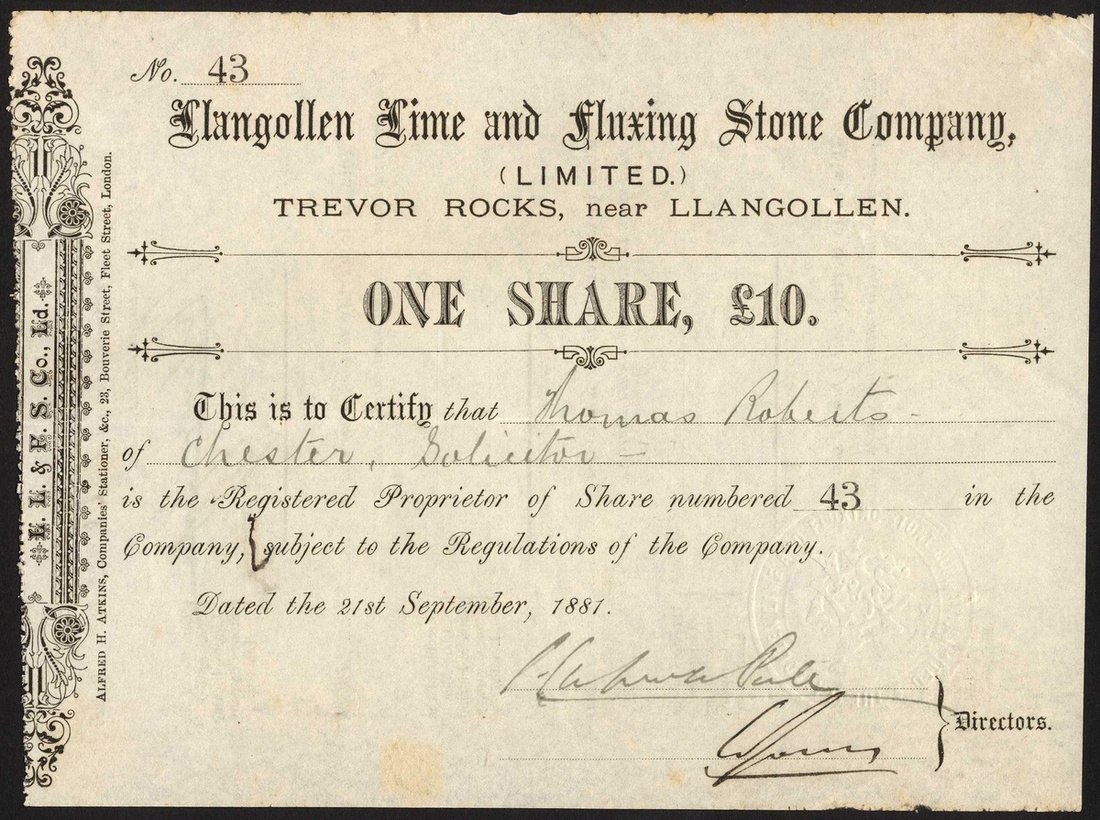 No. 43
Llangollen Lime and Fluxing Stone Company,
(LIMITED.)
TREVOR ROCKS, near LLANGOLLEN.
ONE SHARE, £10.
This is to Certify that Thomas Roberts
of Chester, Solicitor
is the Registered Proprietor of Share numbered 43 in the
Company, subject to the Regulations of the Company.
Dated the 21st September, 1881.
Directors.
L. L. & F. S. Co., Ld.
ALFRED H. ATKINS, Companies' Stationer, &c., 23, Bouverie Street, Fleet Street, London.